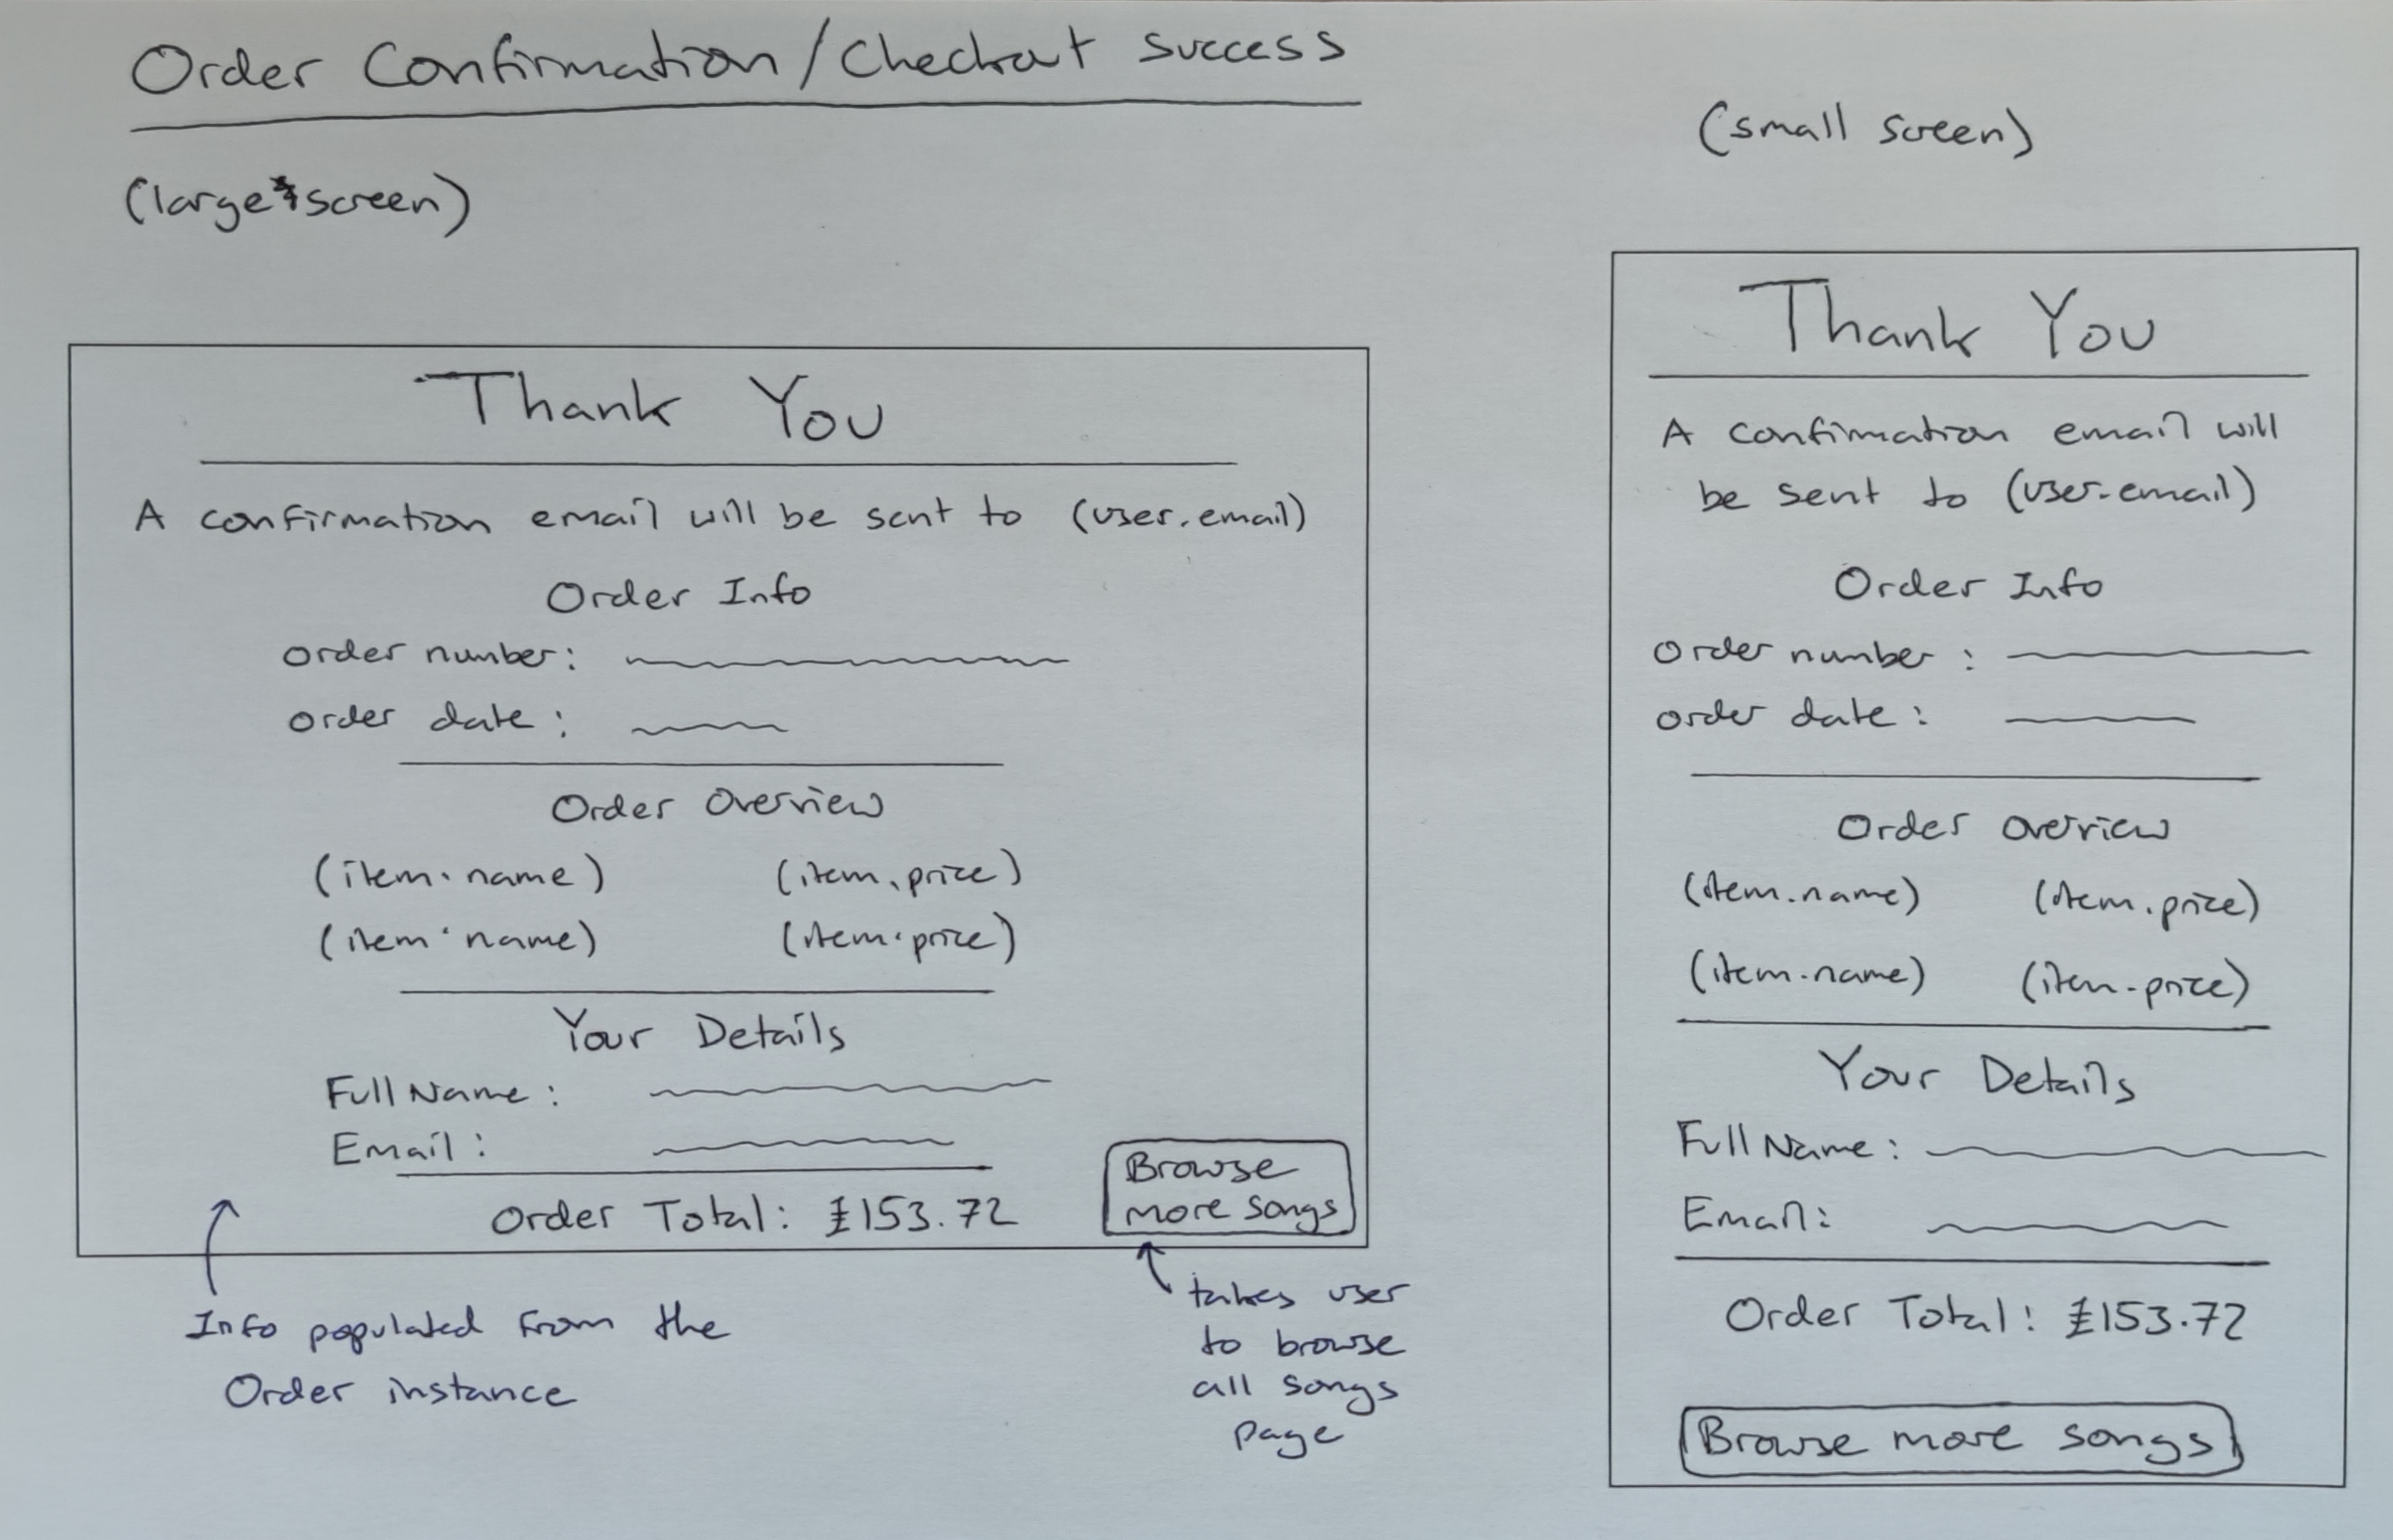 Order Confirmation/Checkout Success
(large screen)
Thank You
A confirmation email will be sent to (user.email)
Order Info
order number:
order date:
Order Overview
(item.name) (item.price)
(item.name) (item.price)
Your Details
Full Name:
Email:
Order Total: £153.72
Browse
more songs
Info populated from the
Order instance
takes user
to browse
all songs
page
(small screen)
Thank You
A confirmation email will
be sent to (user.email)
Order Info
Order number:
order date:
Order overview
(item.name) (item.price)
(item.name) (item.price)
Your Details
Full Name:
Email:
Order Total: £153.72
Browse more songs